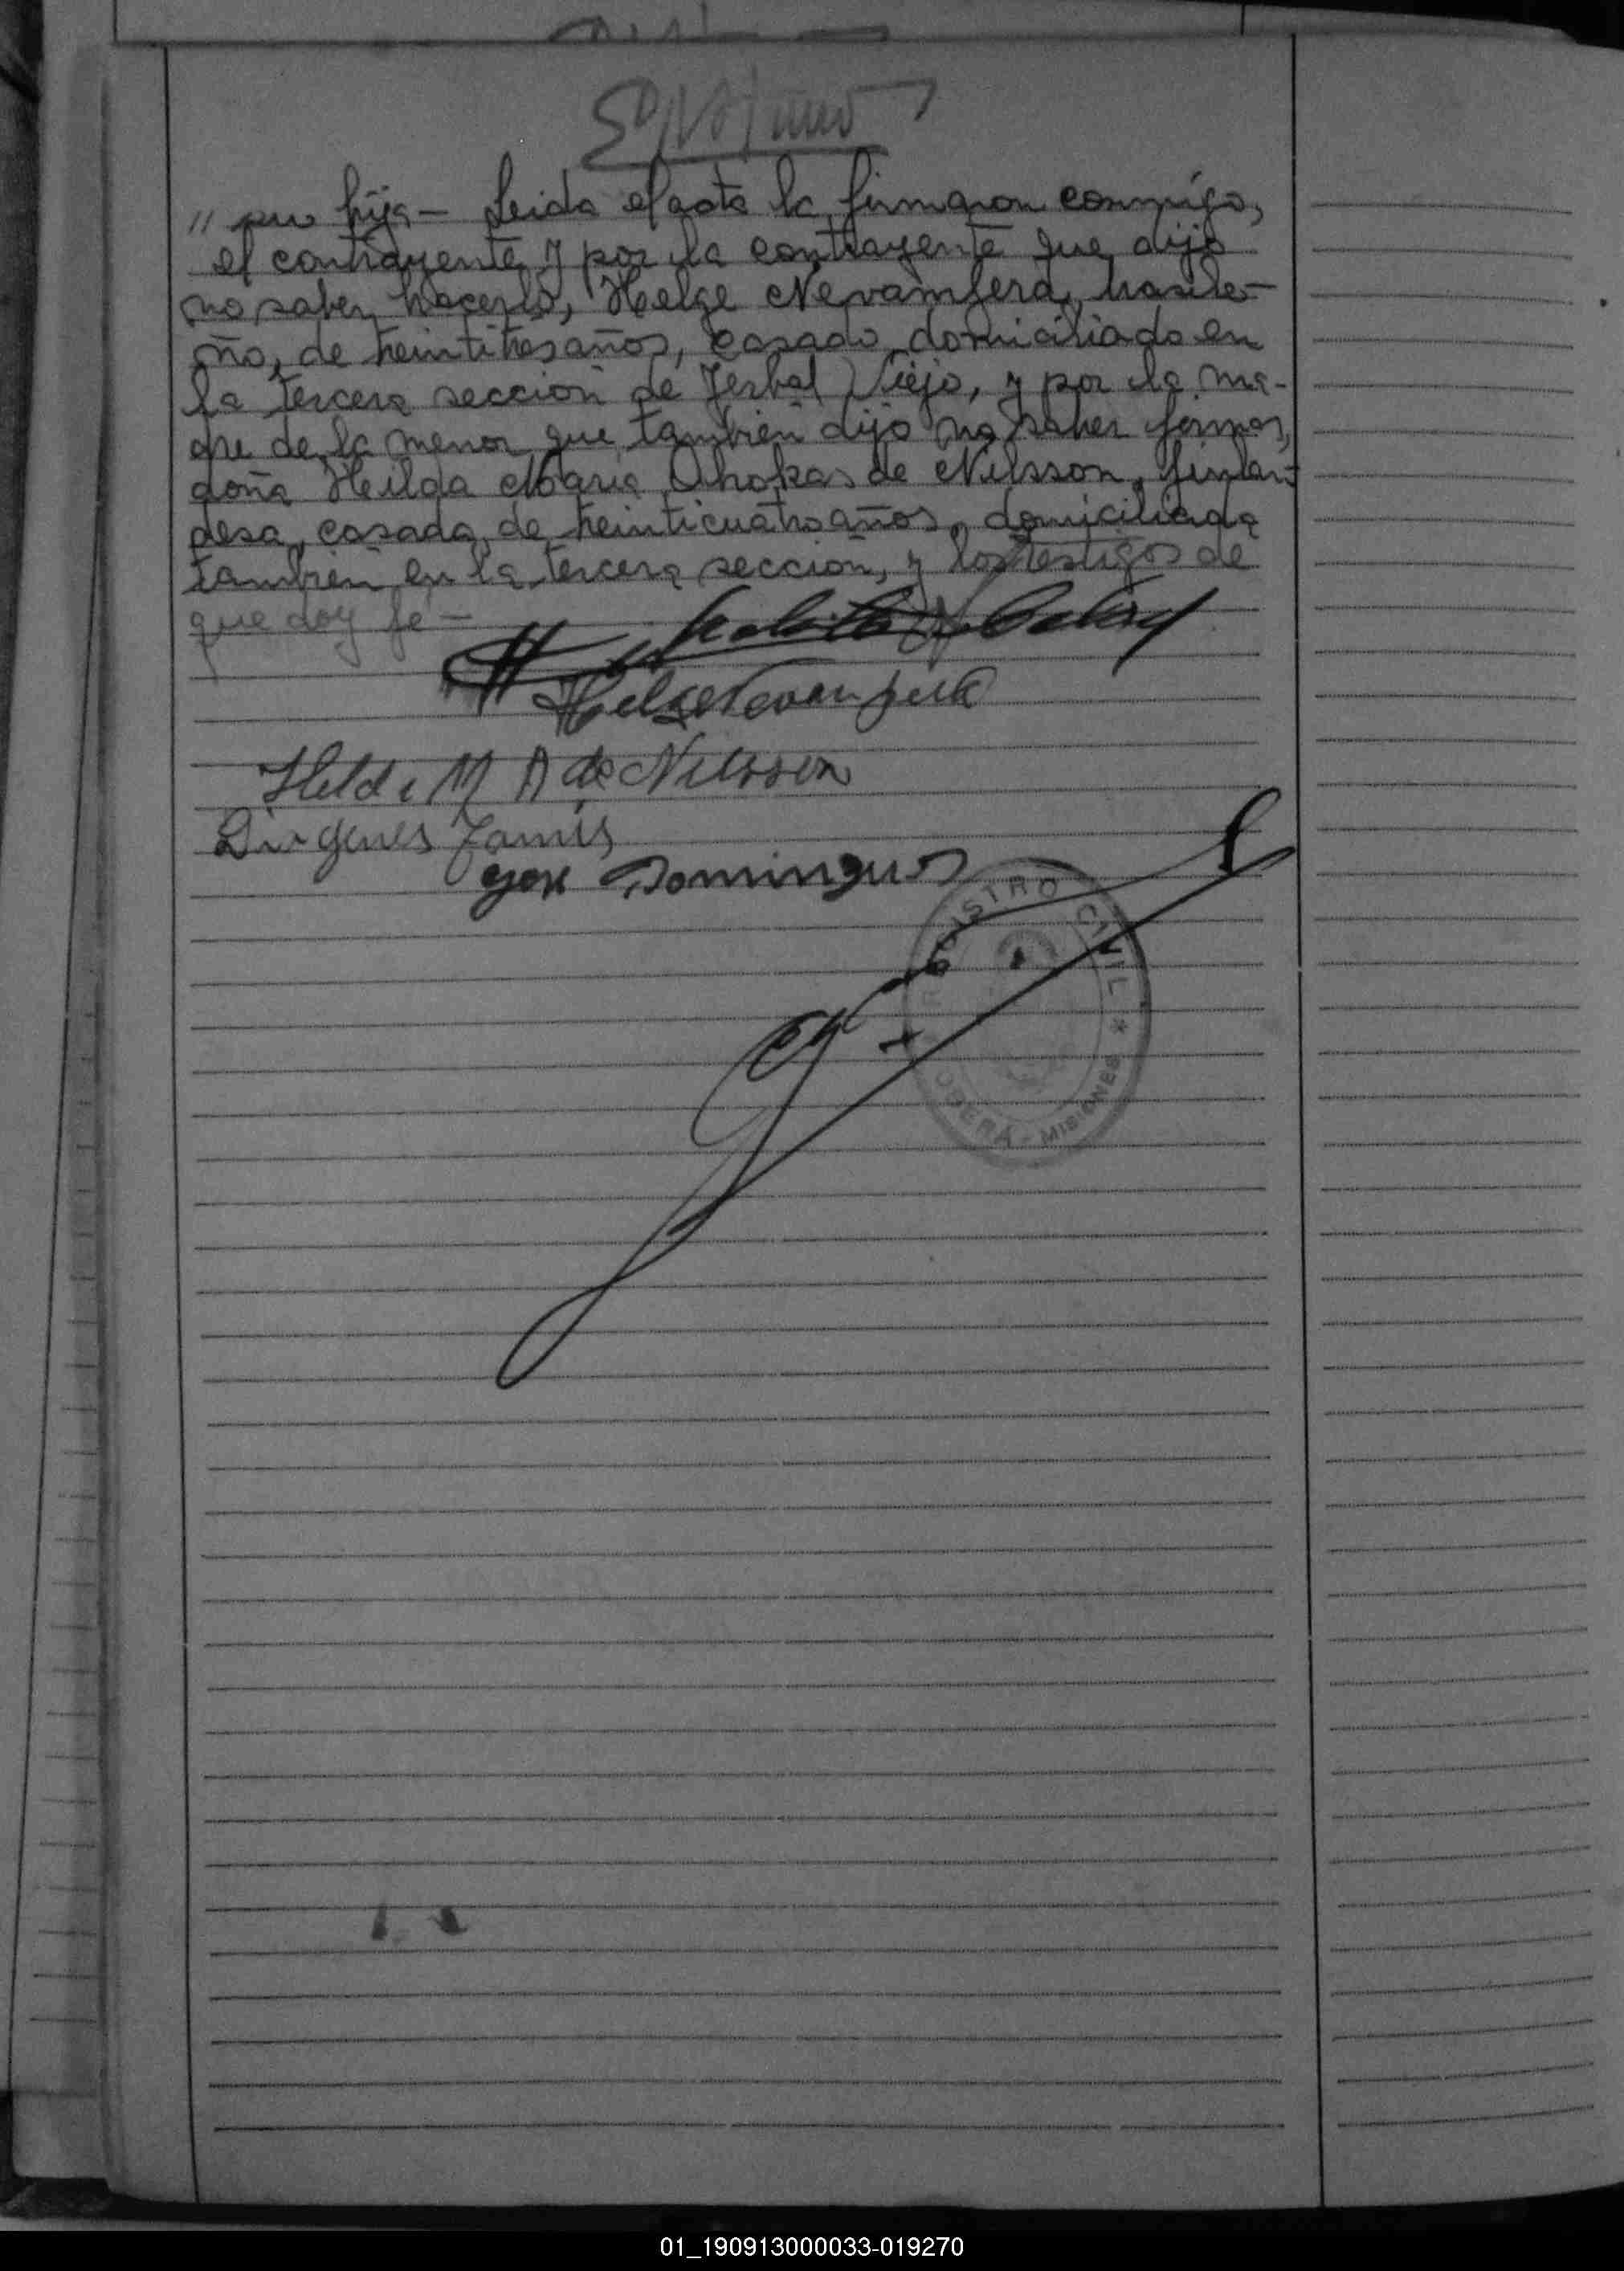 " su hija — Leida el acta la firmaron conmigo,
el contrayente y por la contrayente que dijo
no saber hacerlo, Helge Nevamberd, brasile-
ño, de treintitres años, casado, domiciliado en
la tercera sección de Yerbal Viejo, y por la ma-
dre de la menor que también dijo no saber firmar,
doña Heilda Maria Ahokas de Nilsson, finlan-
desa, casada, de treinticuatro años, domiciliada
también en la tercera sección, y los testigos de
que doy fé —
Helge
Held M A de Nilsson
Diogenes
Jose Domingues
REGISTRO CIVIL *
OBERÁ - MISIONES
01_190913000033-019270